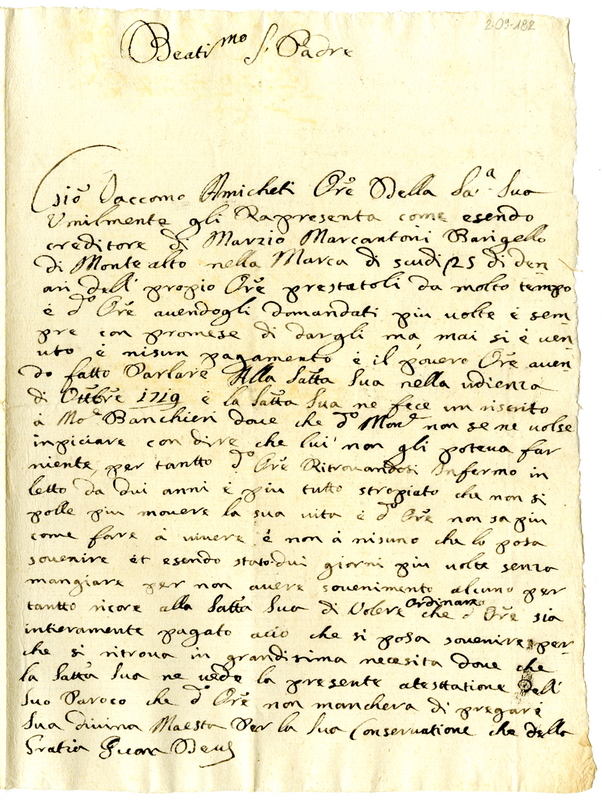 2-09-182
Beati.mo S. Padre
Giaccomo Amicheti Ore Della Sa.a Sua
Umilmente gli Rapresenta come esendo
creditore di Marzio Marcantoni Barigello
di Monte alto nella Marca di scudi 25 di den
ari dell' propio Ore prestatoli da molto tempo
è do Ore avendogli domandati piu volte è sem
pre con promese di dargli ma, mai si è ven
uto è nisun pagamento è il povero Ore aven
do fatto Parlare Alla Satta Sua nella udienza
di Ottbre 1719 è la Satta Sua ne fece un riscrito
à Mo. Banchieri dove che do Mon.e non se ne volse
inpiciare con dire che lui non gli poteva far
niente, per tantto do Ore Ritrovandosi Infermo in
letto da dui anni è piu tutto stropiato che non si
polle piu movere la sua vita è do Ore non sa piu
come fare à vivere è non à nisuno che lo posa
sovenire èt esendo stato dui giorni piu volte senza
mangiare per non avere sovenimento alcuno per
tantto ricore alla Satta Sua di Volere Ordinare che do Ore sia
intieramente pagato acciò che si posa sovenire per
che si ritrova in grandisima necesita dove che
la Satta Sua ne vede la presente atesttatione dell'
Suo Paroco che do Ore non manchera di pregare
Sua divina Maesta Per la Sua Conservatione che della
Gratia Deus